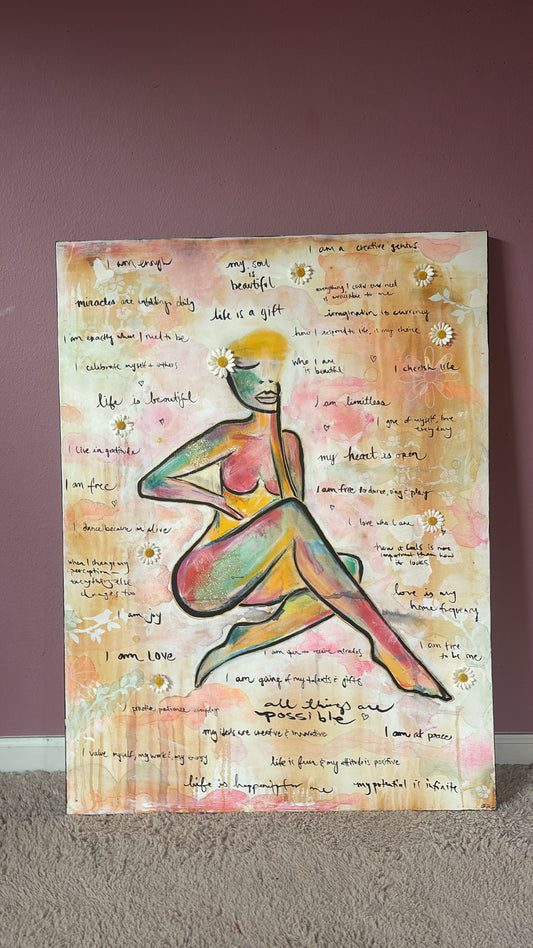 I am a creative genius
I am enough
my soul
is
beautiful
everything I could ever need
is accessible to me
miracles are unfolding daily
life is a gift
imagination is currency
I am exactly where I need to be
how I respond to life, is my choice
I celebrate myself + others
who I am
is beautiful
I cherish life
life is beautiful
I am limitless
I give of myself, love
every day
I live in gratitude
my heart is open
I am free
I am free to dance, sing & play
I dance because im alive
I love who I am
when I change my
perception—
everything else
changes too
how it feels is more
important than how
it looks
love is my
home frequency
I am joy
I am free
to be me
I am LOVE
I am open to receive miracles
I am giving of my talents & gifts
I practice patience
all things are
possible
my ideas are creative & innovative
I am at peace
I value myself, my work & my energy
life is fun & my attitude is positive
life is happening for me
my potential is infinite